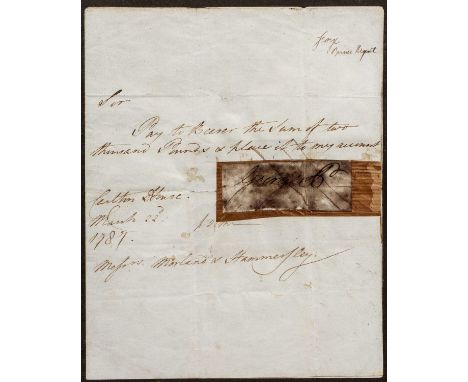 Fox
Prince Regent
Sir
Pay to Bearer the Sum of two
thousand Pounds & place it to my account
George P
Carlton House.
March 22ᵈ
1787.
Messrs. Morland & Hammersley.